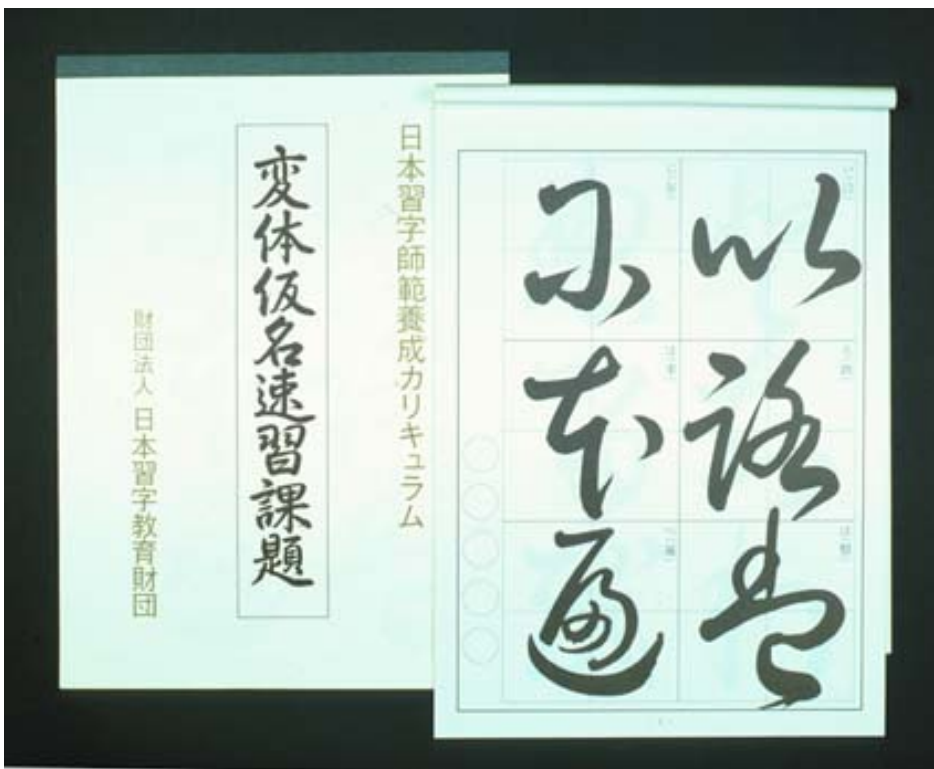 日本習字師範養成カリキュラム
変体仮名速習課題
財団法人 日本習字教育財団
以路盤
尓本遍